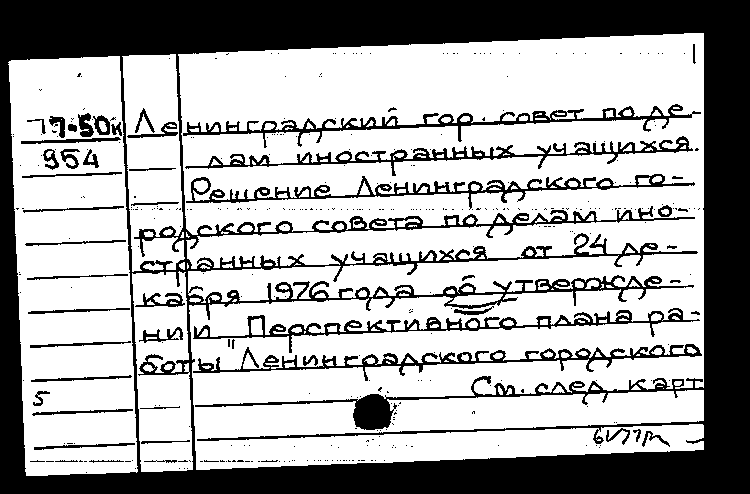 77-50к Ленинградский гор. совет по де-
954 лам иностранных учащихся.
Решение Ленинградского го-
родского совета по делам ино-
странных учащихся от 24 де-
кабря 1976 года об утвержде-
нии Перспективного плана ра-
боты "Ленинградского городского
5 См. след. карт